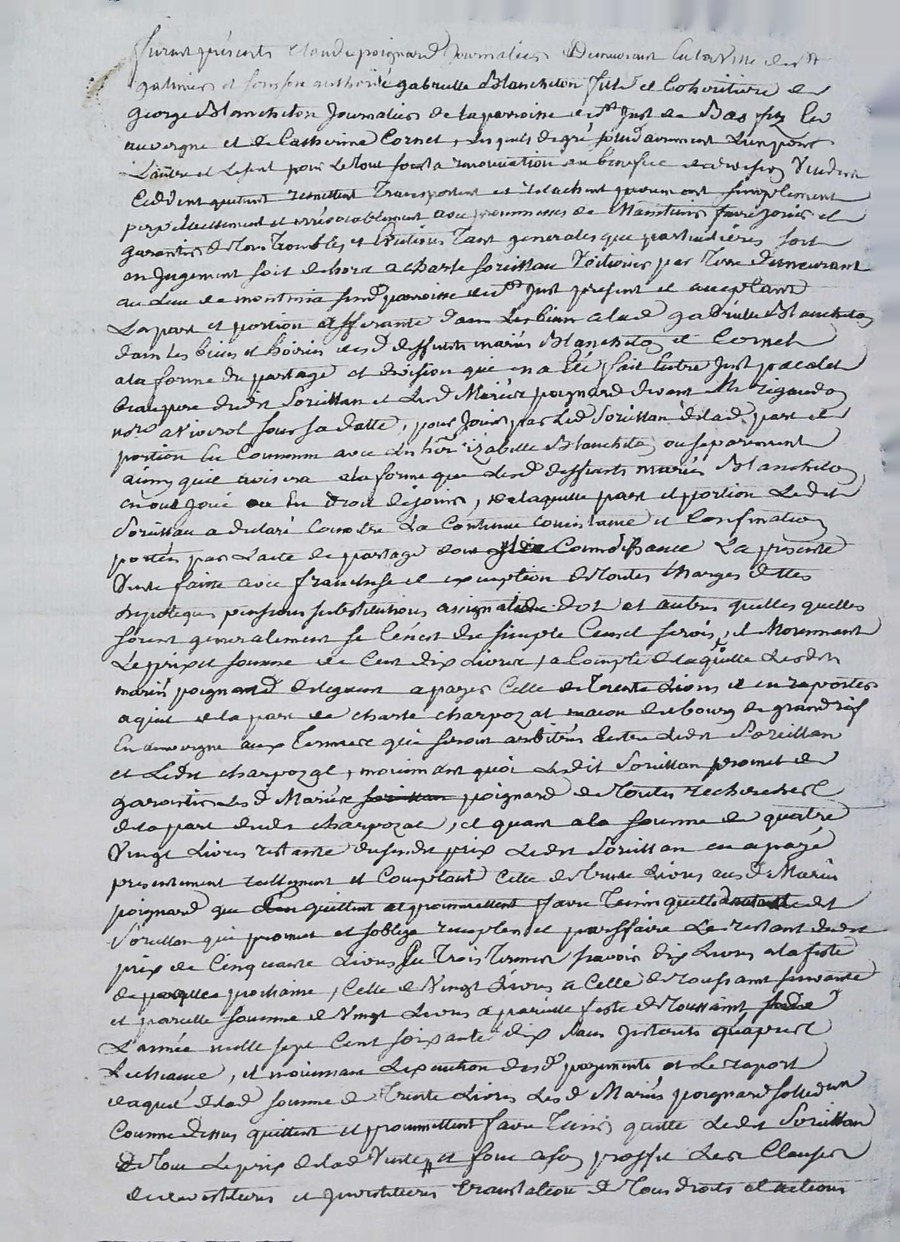 furent présents Claude poignard Journalier Demeurant en la Ville de St
galmier et sous son authorité gabrielle Blancheton fille et Cohéritiere de
george Blancheton Journalier de la paroisse de St Just de Bas en
auvergne et de Catherine Cornet, Lesquels de gré solidairement L'un pour
L'autre et Le seul pour Le tout sous la renonciation au benefice de division Vendent
Ceddent quittent remettent Transportent et relachent purement simplement
perpetuellement et irrévocablement avec promesses de Maintenir faire jouir et
garantir de Tous Troubles et Evictions Tant generales que particulières soit
en Jugement soit dehors a charle Soreillan Voiturier par Terre Demeurant
au Lieu de paroisse de St Just présent et acceptant
La part et portion afferante dans Les biens a lad gabrielle Blancheton
dans les biens et hoirie desd deffunts mariés Blancheton et Cornet
a la forme du partage et division qui en a été fait Entre Just pacalet
beaupere dudit Soreillan et Lesd Mariés poignard devant Me Rigaudon
nore a Viverol sous sa datte, pour Jouir par Led Soreillan de lad part et
portion En Commun avec Izabelle Blancheton ou separement
ainsy qu'il avisera a la forme que Lesd deffunts mariés Blancheton
en ont Joui ou En droit de jouir, de laquelle part et portion Ledit
Soreillan a declaré Connoitre La Continue Consistance et Confination
portés par L'acte de partage dont Connoissance La presente
Vente faitte avec franchise et exemption de Toutes Charges dettes
hypoteques pensions substitutions assignat de dot et autres quelles quelles
soient generalement si Ce n'est du simple Cens et servis, et Moyennant
Le prix et somme de Cent dix Livres, a Compte de laquelle Lesdits
mariés poignard deleguent a payer Celle de Trente Livres et en raporter
aquit de la part de charle charpozat macon du bourg de grandrif
En auvergne aux Termes qui seront arbitrés Entre Ledit Soreillan
et Ledit charpozat, moiennant quoi Ledit Soreillan promet de
garantir Lesd Mariés poignard de Toutes recherches
de la part dudit charpozat, et quant a la somme de quatre
Vingt Livres restante dususdit prix Ledit Soreillan en a payé
presentement reellement et Comptant Celle de Trente Livres aux d Mariés
poignard que L'en quittent et promettent faire Tenir quitte ledit
Soreillan qui promet et s'oblige remplir et parffaire Le restant dudit
prix de Cinquante Livres En Trois Termes savoir dix Livres a la feste
de paques prochaine, Celle de Vingt Livres a Celle de Toussaint suivante
et pareille somme de Vingt Livres a pareille feste de Toussaint de
L'année mille sept Cent soixante dix sans Interets qu'apres
L'echeance, et moiennant L'execution desd payements et Le raport
d'aquit de lad somme de Trente Livres Lesd Mariés poignard solidairement
Comme dessus quittent et promettent faire Tenir quitte Ledit Soreillan
de Tout Le prix de lad Vente, et sont a son proffit Les Clauses
de devestitures et Investitures translation de Tous droits et actions